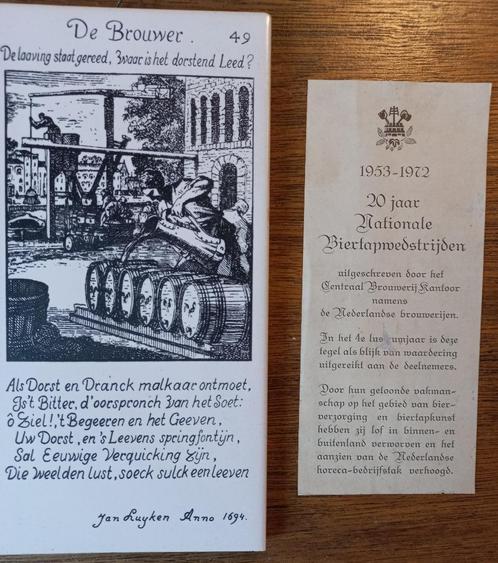 De Brouwer. 49
De laaving staat gereed, Zwaar is het dorstend Leed?
Als Dorst en Dranck malkaar ontmoet,
Is't Bitter, d'oorspronch van het Soet:
ô Ziel!, 't Begeeren en het Geeven,
Uw Dorst, en's Leevens springfontijn,
Sal Eeuwige Verquicking zijn,
Die weelden lust, soeck sulck een leeven
Jan Luyken Anno 1694.
1953-1972
20 jaar
Nationale
Biertapwedstrijden
uitgeschreven door het
Centraal Brouwerij Kantoor
namens
de Nederlandse brouwerijen.
In het 4e lustrumjaar is deze
tegel als blijk van waardering
uitgereikt aan de deelnemers.
Door hun getoonde vakman-
schap op het gebied van bier-
verzorging en biertapkunst
hebben zij lof in binnen- en
buitenland verworven en het
aanzien van de Nederlandse
horeca-bedrijfstak verhoogd.